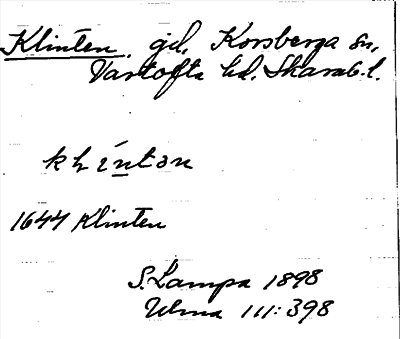 Klinten. gd, Korsberga sn,
Vartofta hd. Skarab. l.
k l í n t ə n
1644 Klinten
S. Lampa 1898
Ulma 111: 398